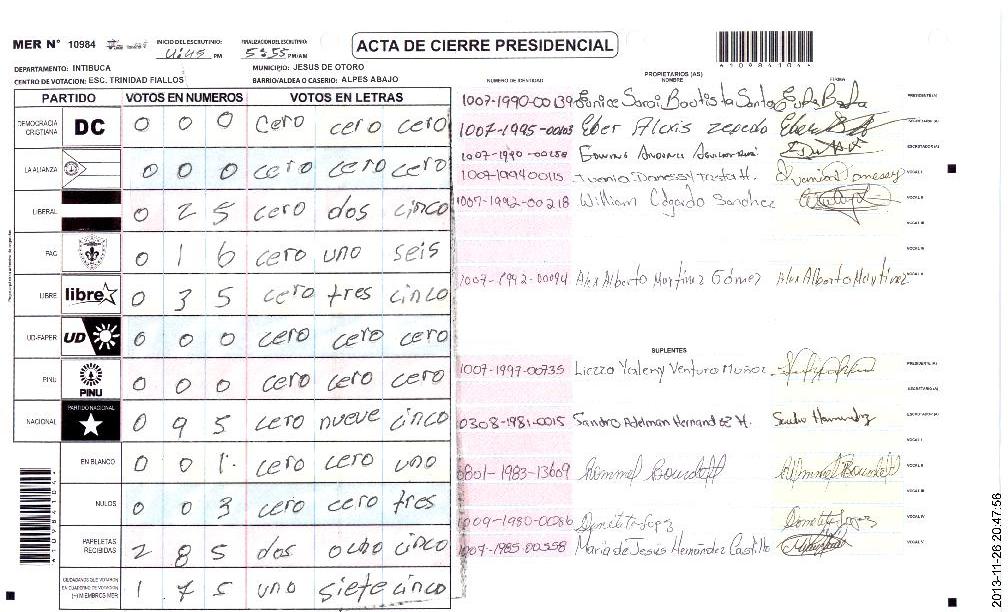 MER Nº 10984
INICIO DEL ESCRUTINIO: 4:45 PM
FINALIZACION DEL ESCRUTINIO: 5:55 PM/AM
ACTA DE CIERRE PRESIDENCIAL
DEPARTAMENTO: INTIBUCA
MUNICIPIO: JESUS DE OTORO
CENTRO DE VOTACION: ESC. TRINIDAD FIALLOS
BARRIO/ALDEA O CASERIO: ALPES ABAJO
PARTIDO VOTOS EN NUMEROS VOTOS EN LETRAS
DEMOCRACIA CRISTIANA DC 0 0 0 cero cero cero
LA ALIANZA 0 0 0 cero cero cero
LIBERAL 0 2 5 cero dos cinco
PAC 0 1 6 cero uno seis
LIBRE libre 0 3 5 cero tres cinco
UD-FAPER UD 0 0 0 cero cero cero
PINU PINU 0 0 0 cero cero cero
NACIONAL PARTIDO NACIONAL 0 9 5 cero nueve cinco
EN BLANCO 0 0 1 cero cero uno
NULOS 0 0 3 cero cero tres
PAPELETAS RECIBIDAS 2 8 5 dos ocho cinco
CIUDADANOS QUE VOTARON EN CUADERNO DE VOTACION (+) MIEMBROS MER 1 7 5 uno siete cinco
NUMERO DE IDENTIDAD
PROPIETARIOS (AS)
NOMBRE
FIRMA
1007-1990-00139 Eunice Sarai Bautista Santos
PRESIDENTE (A)
1007-1995-00103 Eber Alexis zepeda
SECRETARIO (A)
1007-1990-00258
ESCRUTADOR (A)
1007-199400115
VOCAL I
1007-1992-00218 William Edgardo Sanchez
VOCAL II
VOCAL III
VOCAL IV
1007-1992-00094 Alex Alberto Martinez Gómez Alex Alberto Martinez
VOCAL V
SUPLENTES
1007-1997-00735 Yaleny Ventura Muñoz
PRESIDENTE (A)
SECRETARIO (A)
0308-1981-0015 Sandro Adelman Hernandez H.
ESCRUTADOR (A)
VOCAL I
0801-1983-13609
VOCAL II
VOCAL III
1009-1980-00086
VOCAL IV
1007-1985-00558 Maria de Jesus Hernández Castillo
VOCAL V
2013-11-26 20:47:56